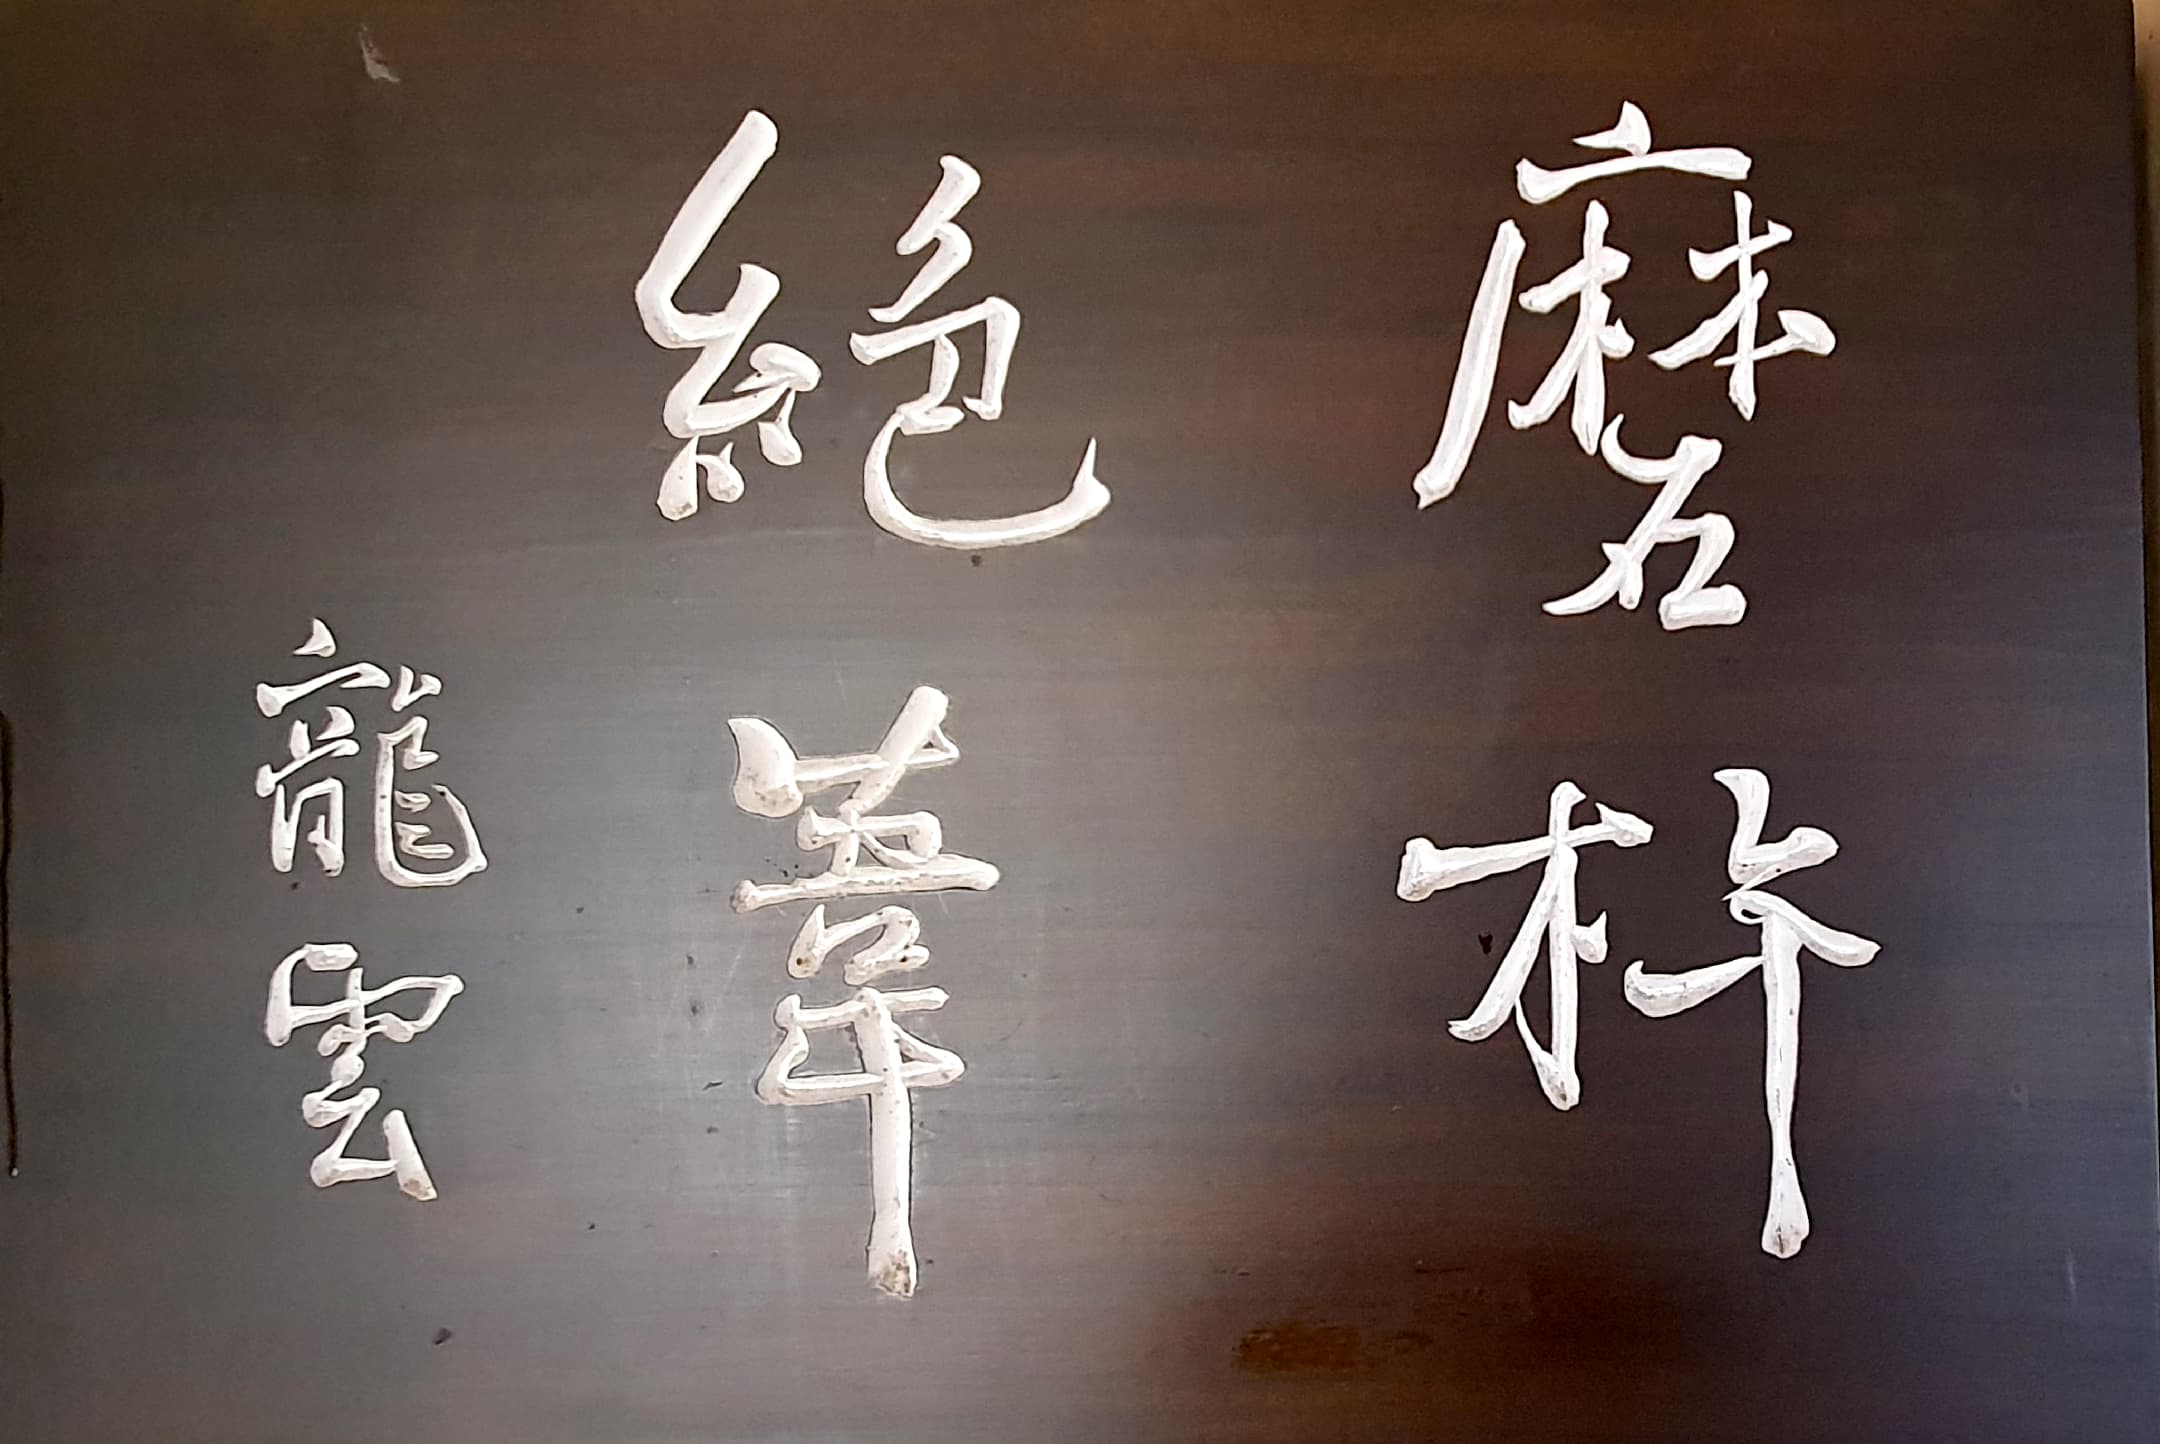 磨杵
絕葦
龍雲